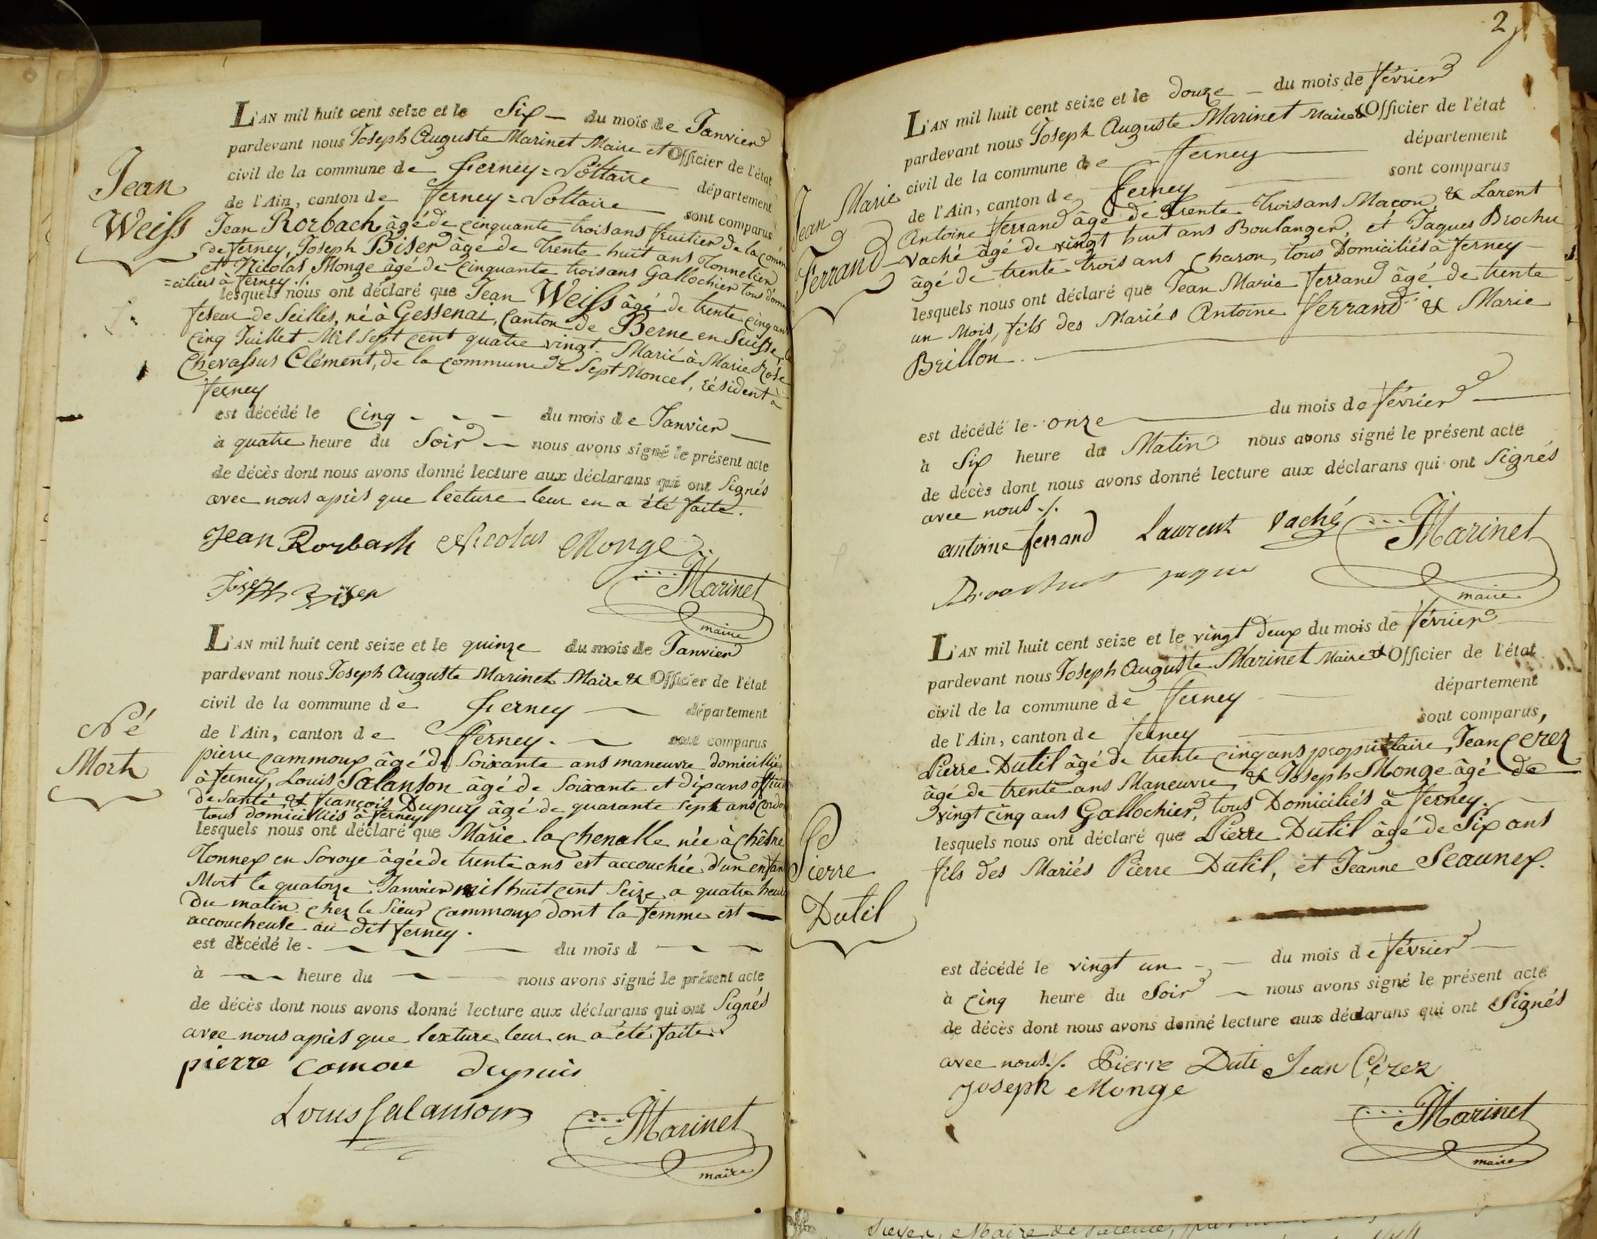 Jean
Weiss
L'AN mil huit cent seize et le Six du mois de Janvier
pardevant nous Joseph Auguste Marinet Maire et Officier de l'état
civil de la commune de Ferney=Voltaire département
de l'Ain, canton de Ferney=Voltaire sont comparus
Jean Rorbach âgé de cinquante trois ans fruitier de la comm
de ferney, Joseph Biser âgé de trente huit ans Tonnelier
et Nicolas Monge âgé de Cinquante trois ans Gallochier tous domi
=ciliers à ferney./.
lesquels nous ont déclaré que Jean Weiss âgé de trente cinq ans
feseur de Seilles, né à Gessenai, Canton de Berne en Suisse, le
Cinq Juillet Mil Sept cent quatre vingt. Marié à Marie Rose
Chevassus Clément, de la commune de Sept Moncel, résident à
ferney
est décédé le cinq - - - du mois de Janvier
à quatre heure du Soir nous avons signé le présent acte
de décès dont nous avons donné lecture aux déclarans qui ont Signés
avec nous après que lecture leur en a été faite.
Jean Rorbach Nicolas Monge
Joseph Biser Marinet
maire
Né
Mort
L'AN mil huit cent seize et le quinze du mois de Janvier
pardevant nous Joseph Auguste Marinet Maire & Officier de l'état
civil de la commune de Ferney département
de l'Ain, canton de Ferney. sont comparus
pierre Cammoux âgé de Soixante ans maneuvre domicilié
à ferney, Louis Salanson âgé de Soixante et dix ans officier
de Santé & françois Dupuy âgé de quarante Sept ans Cordon
tous domiciliés à ferney
lesquels nous ont déclaré que Marie la Chenalle née à Chêsne
Tonnex en Savoye âgée de trente ans est accouchée d'un enfan
Mort le quatorze Janvier mil huit cent Seize a quatre heure
Du matin chez le Sieur Cammoux dont la femme est
accoucheuse au dit ferney.
est décédé le - du mois d
à heure du nous avons signé le présent acte
de décès dont nous avons donné lecture aux déclarans qui ont Signés
avec nous après que lecture leur en a été faite
pierre Comou dupuis
Louis Salanson Marinet
maire
2
Jean Marie
Ferrand
L'AN mil huit cent seize et le douze - du mois de février
pardevant nous Joseph Auguste Marinet Maire & Officier de l'état
civil de la commune de ferney département
de l'Ain, canton de ferney sont comparus
Antoine ferrand âgé de trente trois ans Maçon, & Larent
Vaché âgé de vingt huit ans Boulanger, et Jaques Brochu
âgé de trente trois ans Charon, tous Domiciliés à ferney
lesquels nous ont déclaré que Jean Marie ferrand âgé de trente
un Mois, fils des Mariés Antoine ferrand & Marie
Brillon.
est décédé le onze du mois de février
à Six heure du Matin nous avons signé le présent acte
de décès dont nous avons donné lecture aux déclarans qui ont Signés
avec nous./.
antoine ferrand Laurent vaché Marinet
maire
Pierre
Dutil
L'AN mil huit cent seize et le vingt deux du mois de février
pardevant nous Joseph Auguste Marinet Maire & Officier de l'état
civil de la commune de ferney département
de l'Ain, canton de ferney sont comparus,
Pierre Dutil âgé de trente cinq ans propriétaire, Jean Cerez
âgé de trente ans Maneuvre & Joseph Monge âgé de
vingt cinq ans Gallochier, tous Domiciliés à ferney.
lesquels nous ont déclaré que Pierre Dutil âgé de Six ans
fils des Mariés Pierre Dutil, et Jeanne Seaunex.
est décédé le vingt un - du mois de février
à cinq heure du Soir nous avons signé le présent acte
de décès dont nous avons donné lecture aux déclarans qui ont Signés
avec nous./. Pierre Duti Jean Cérez
Joseph Monge
Marinet
maire